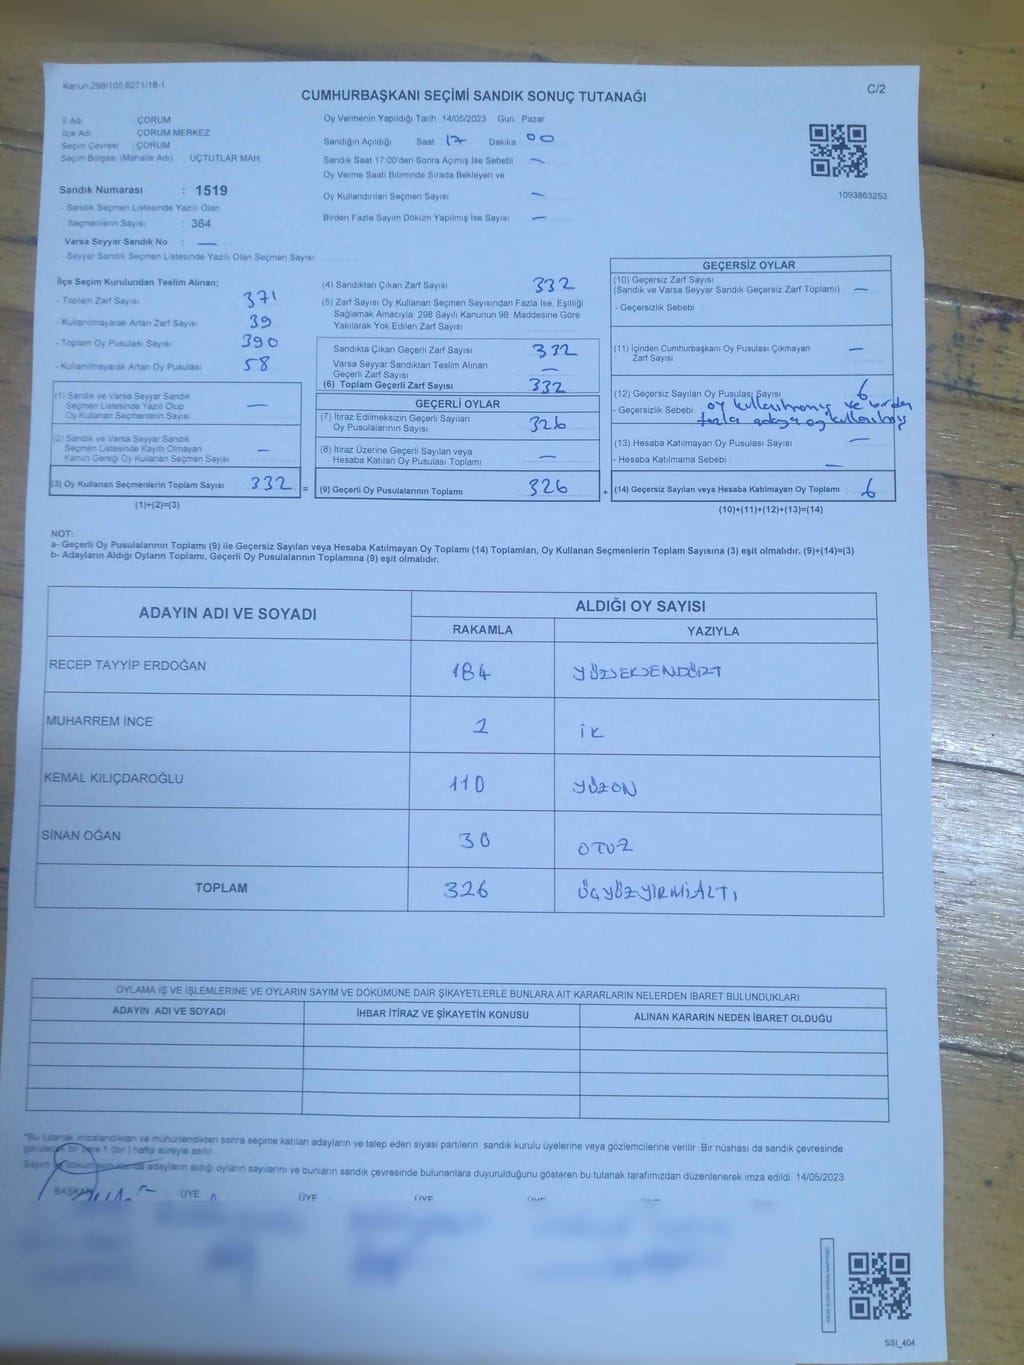 Kanun:298/105,6271/18-1
C/2
CUMHURBAŞKANI SEÇİMİ SANDIK SONUÇ TUTANAĞI
İl Adı : ÇORUM
İlçe Adı : ÇORUM MERKEZ
Seçim Çevresi : ÇORUM
Seçim Bölgesi (Mahalle Adı) : ÜÇTUTLAR MAH.
Sandık Numarası : 1519
- Sandık Seçmen Listesinde Yazılı Olan
Seçmenlerin Sayısı : 364
Varsa Seyyar Sandık No : —
- Seyyar Sandık Seçmen Listesinde Yazılı Olan Seçmen Sayısı:
Oy Vermenin Yapıldığı Tarih 14/05/2023 Gün : Pazar
Sandığın Açıldığı Saat 17 Dakika 00
Sandık Saat 17:00'den Sonra Açımış İse Sebebi —
Oy Verme Saati Bitiminde Sırada Bekleyen ve
Oy Kullandırılan Seçmen Sayısı —
Birden Fazla Sayım Döküm Yapılmış İse Sayısı —
1093863253
İlçe Seçim Kurulundan Teslim Alınan;
- Toplam Zarf Sayısı 371
- Kullanılmayarak Artan Zarf Sayısı 39
- Toplam Oy Pusulası Sayısı 390
- Kullanılmayarak Artan Oy Pusulası 58
(1) Sandık ve Varsa Seyyar Sandık
Seçmen Listesinde Yazılı Olup
Oy Kullanan Seçmenlerin Sayısı —
(2) Sandık ve Varsa Seyyar Sandık
Seçmen Listesinde Kayıtlı Olmayan
Kanun Gereği Oy Kullanan Seçmen Sayısı —
(3) Oy Kullanan Seçmenlerin Toplam Sayısı 332 =
(1)+(2)=(3)
(4) Sandıktan Çıkan Zarf Sayısı 332
(5) Zarf Sayısı Oy Kullanan Seçmen Sayısından Fazla İse, Eşitliği
Sağlamak Amacıyla, 298 Sayılı Kanunun 98. Maddesine Göre
Yakılarak Yok Edilen Zarf Sayısı
Sandıkta Çıkan Geçerli Zarf Sayısı 332
Varsa Seyyar Sandıktan Teslim Alınan
Geçerli Zarf Sayısı —
(6) Toplam Geçerli Zarf Sayısı 332
GEÇERLİ OYLAR
(7) İtiraz Edilmeksizin Geçerli Sayılan
Oy Pusulalarının Sayısı : 326
(8) İtiraz Üzerine Geçerli Sayılan veya
Hesaba Katılan Oy Pusulası Toplamı : —
(9) Geçerli Oy Pusulalarının Toplamı : 326 +
GEÇERSİZ OYLAR
(10) Geçersiz Zarf Sayısı
(Sandık ve Varsa Seyyar Sandık Geçersiz Zarf Toplamı) —
- Geçersizlik Sebebi :
(11) İçinden Cumhurbaşkanı Oy Pusulası Çıkmayan
Zarf Sayısı —
(12) Geçersiz Sayılan Oy Pusulası Sayısı 6
- Geçersizlik Sebebi : oy kullanılmamış ve birden
fazla adaya oy kullanılmış
(13) Hesaba Katılmayan Oy Pusulası Sayısı —
- Hesaba Katılmama Sebebi : —
(14) Geçersiz Sayılan veya Hesaba Katılmayan Oy Toplamı : 6
(10)+(11)+(12)+(13)=(14)
NOT:
a- Geçerli Oy Pusulalarının Toplamı (9) ile Geçersiz Sayılan veya Hesaba Katılmayan Oy Toplamı (14) Toplamları, Oy Kullanan Seçmenlerin Toplam Sayısına (3) eşit olmalıdır. (9)+(14)=(3)
b- Adayların Aldığı Oyların Toplamı, Geçerli Oy Pusulalarının Toplamına (9) eşit olmalıdır.
ADAYIN ADI VE SOYADI
ALDIĞI OY SAYISI
RAKAMLA YAZIYLA
RECEP TAYYİP ERDOĞAN 184 YÜZSEKSENDÖRT
MUHARREM İNCE 2 İK
KEMAL KILIÇDAROĞLU 110 YÜZON
SİNAN OĞAN 30 OTUZ
TOPLAM 326 ÜÇYÜZYİRMİALTI
OYLAMA İŞ VE İŞLEMLERİNE VE OYLARIN SAYIM VE DÖKÜMÜNE DAİR ŞİKAYETLERLE BUNLARA AİT KARARLARIN NELERDEN İBARET BULUNDUKLARI
ADAYIN ADI VE SOYADI İHBAR İTİRAZ VE ŞİKAYETİN KONUSU ALINAN KARARIN NEDEN İBARET OLDUĞU
*Bu tutanak imzalandıktan ve mühürlendikten sonra seçime katılan adayların ve talep eden siyasi partilerin sandık kurulu üyelerine veya gözlemcilerine verilir. Bir nüshası da sandık çevresinde
görülecek bir yere 1 (bir) hafta süreyle asılır.
Sayım ve döküm sonucunda adayların aldığı oyların sayılarını ve bunların sandık çevresinde bulunanlara duyurulduğunu gösteren bu tutanak tarafımızdan düzenlenerek imza edildi. 14/05/2023
BAŞKAN ÜYE ÜYE ÜYE ÜYE ÜYE
SSI_404